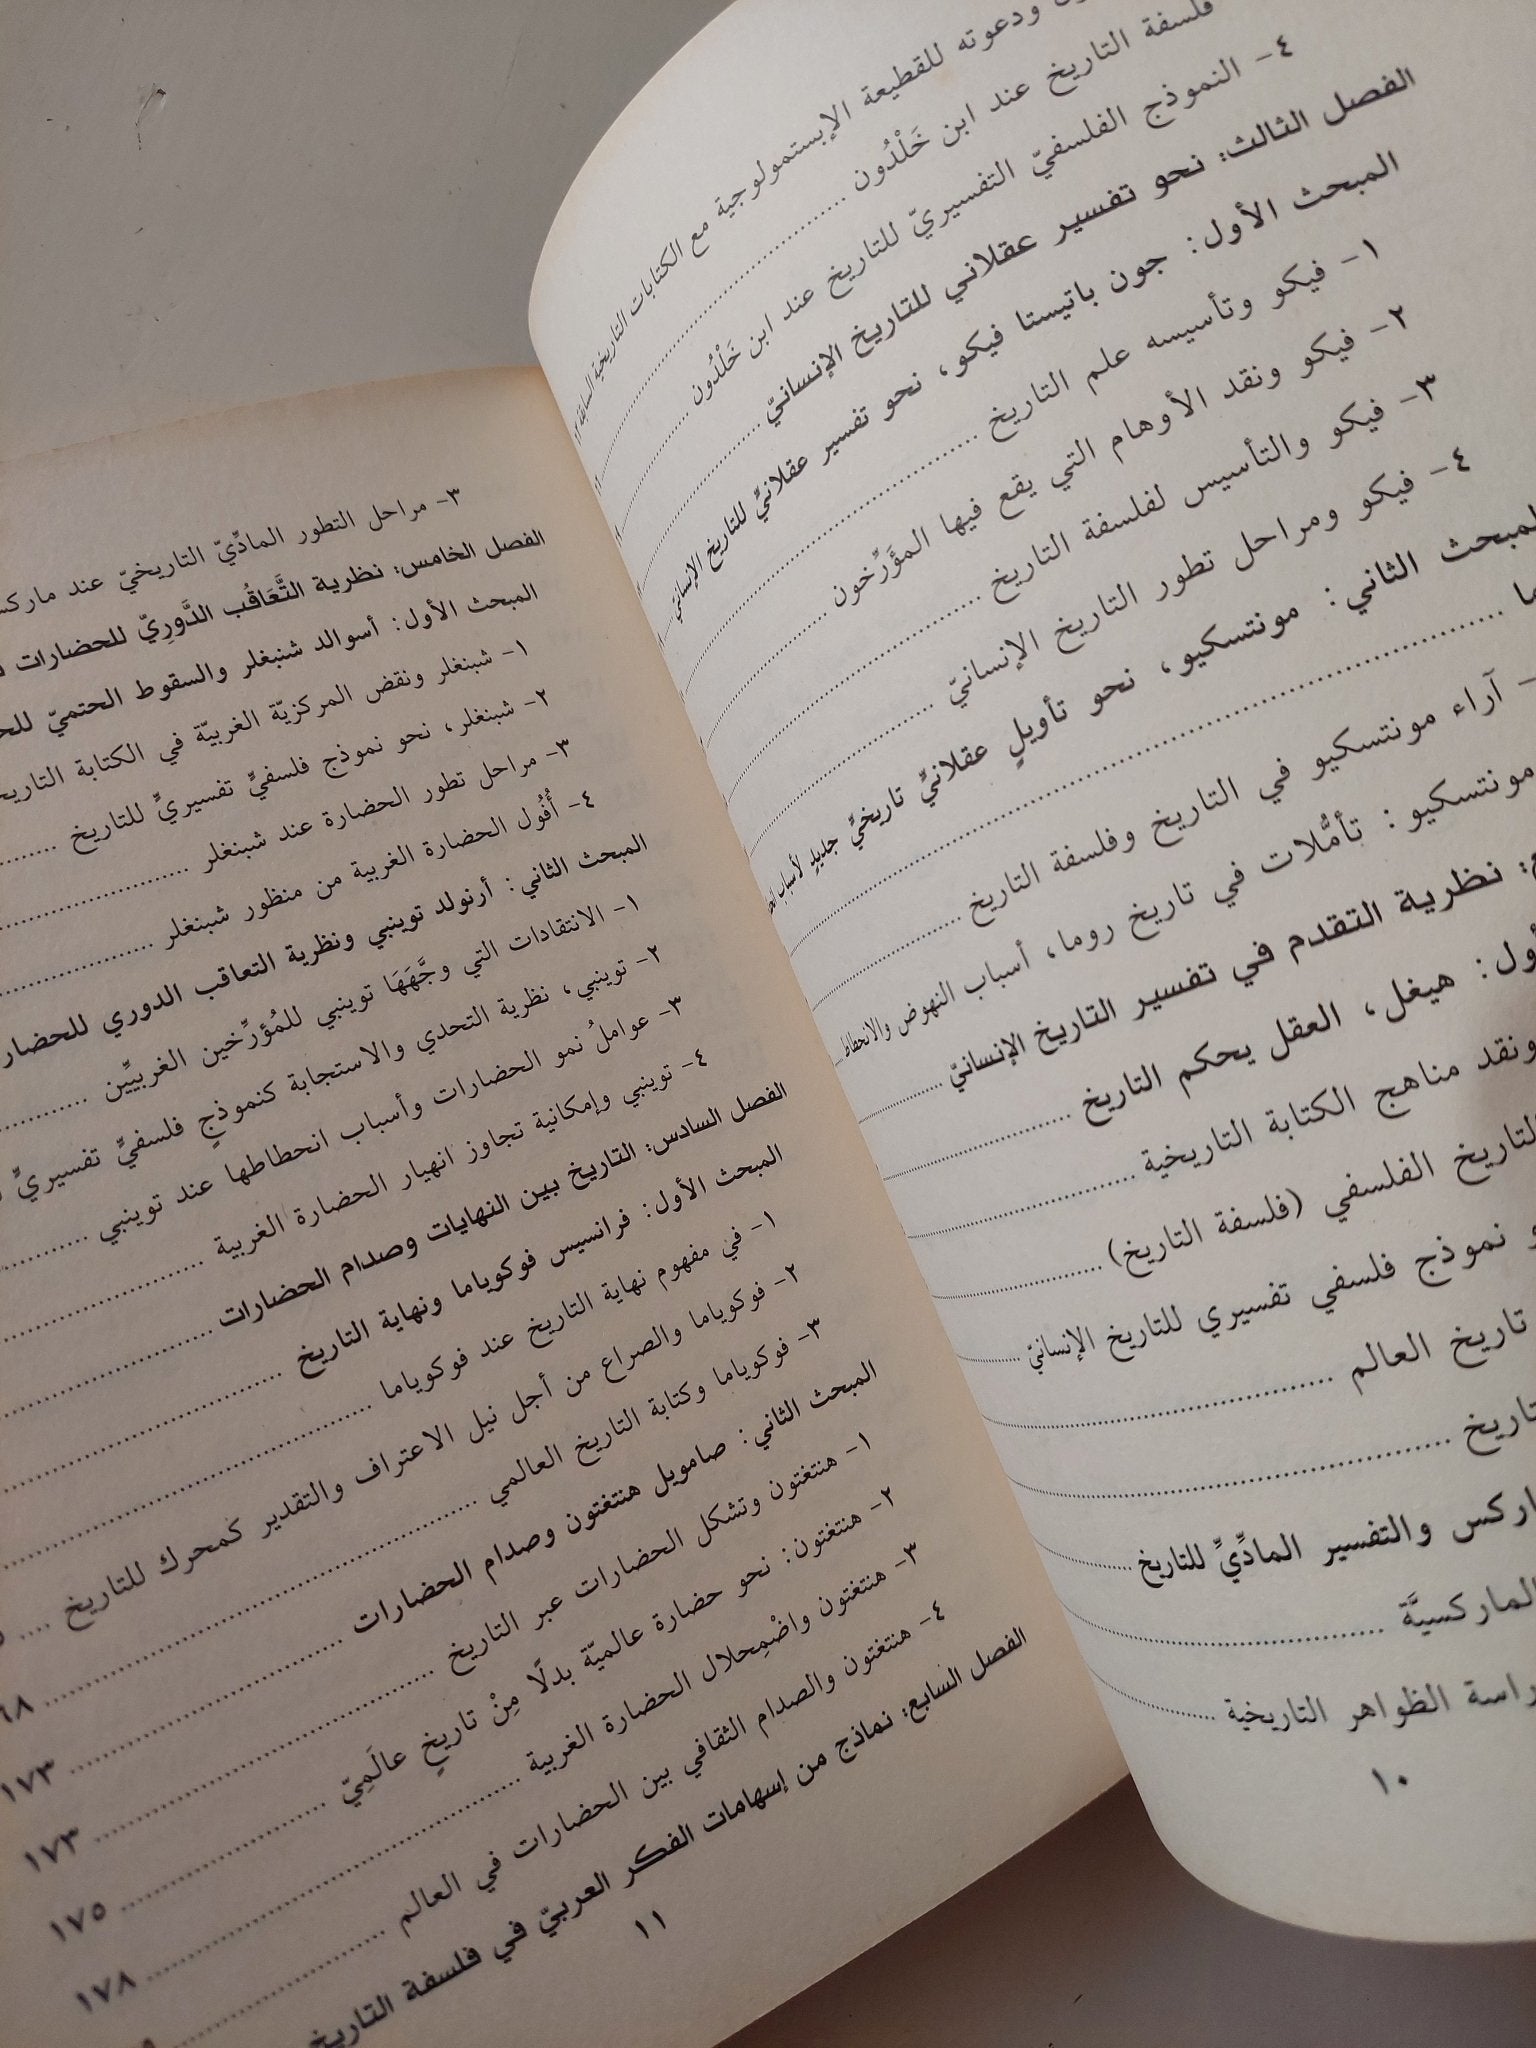 ودعوته للقطيعة الإبستمولوجية مع الكتابات التاريخية السابقة
فلسفة التاريخ عند ابن خَلْدُون
٤- النموذج الفلسفيّ التفسيريّ للتاريخ عند ابن خَلْدُون
الفصل الثالث: نحو تفسير عقلاني للتاريخ الإنسانيّ
المبحث الأول: جون باتيستا فيكو، نحو تفسير عقلانيٍّ للتاريخ الإنسانيّ
١- فيكو وتأسيسه علم التاريخ
٢- فيكو ونقد الأوهام التي يقع فيها المؤرِّخون
٣- فيكو والتأسيس لفلسفة التاريخ
٤- فيكو ومراحل تطور التاريخ الإنسانيّ
المبحث الثاني: مونتسكيو، نحو تأويلٍ عقلانيٍّ تاريخيٍّ جديدٍ لأسباب
- آراء مونتسكيو في التاريخ وفلسفة التاريخ
مونتسكيو: تأمُّلات في تاريخ روما، أسباب النهوض والانحطاط
: نظرية التقدم في تفسير التاريخ الإنسانيّ
: هيغل، العقل يحكم التاريخ
ونقد مناهج الكتابة التاريخية
التاريخ الفلسفي (فلسفة التاريخ)
نموذج فلسفي تفسيري للتاريخ الإنسانيّ
تاريخ العالم
والتفسير المادِّيِّ للتاريخ
الماركسيَّة
الظواهر التاريخية
١٠
٣- مراحل التطور المادِّيّ التاريخيّ عند
الفصل الخامس: نظرية التَّعَاقُب الدَّورِيِّ للحضارات
المبحث الأول: أسوالد شنبغلر والسقوط الحتميّ
١- شبنغلر ونقض المركزيّة الغربيّة في الكتابة
٢- شبنغلر، نحو نموذج فلسفيٍّ تفسيريٍّ للتاريخ
٣- مراحل تطور الحضارة عند شبنغلر
٤- أُفُول الحضارة الغربية من منظور شبنغلر
المبحث الثاني: أرنولد توينبي ونظرية التعاقب الدوري
١- الانتقادات التي وجَّهَهَا توينبي للمُؤرِّخين الغربيِّين
٢- توينبي، نظرية التحدي والاستجابة كنموذجٍ فلسفيٍّ تفسيريٍّ
٣- عواملُ نمو الحضارات وأسباب انحطاطها عند توينبي
٤- توينبي وإمكانية تجاوز انهيار الحضارة الغربية
الفصل السادس: التاريخ بين النهايات وصدام الحضارات
المبحث الأول: فرانسيس فوكوياما ونهاية التاريخ
١- في مفهوم نهاية التاريخ عند فوكوياما
٢- فوكوياما والصراع من أجل نيل الاعتراف والتقدير كمحرك للتاريخ
٣- فوكوياما وكتابة التاريخ العالمي
المبحث الثاني: صامويل هنتغتون وصدام الحضارات ١٧٣
١- هنتغتون وتشكل الحضارات عبر التاريخ ١٧٣
٢- هنتغتون: نحو حضارة عالميّة بدلًا مِنْ تاريخٍ عالَمِيّ ١٧٥
٣- هنتغتون واضْمِحلال الحضارة الغربية ١٧٨
٤- هنتغتون والصدام الثقافي بين الحضارات في العالم
الفصل السابع: نماذج من إسهامات الفكر العربيّ في فلسفة التاريخ
١١